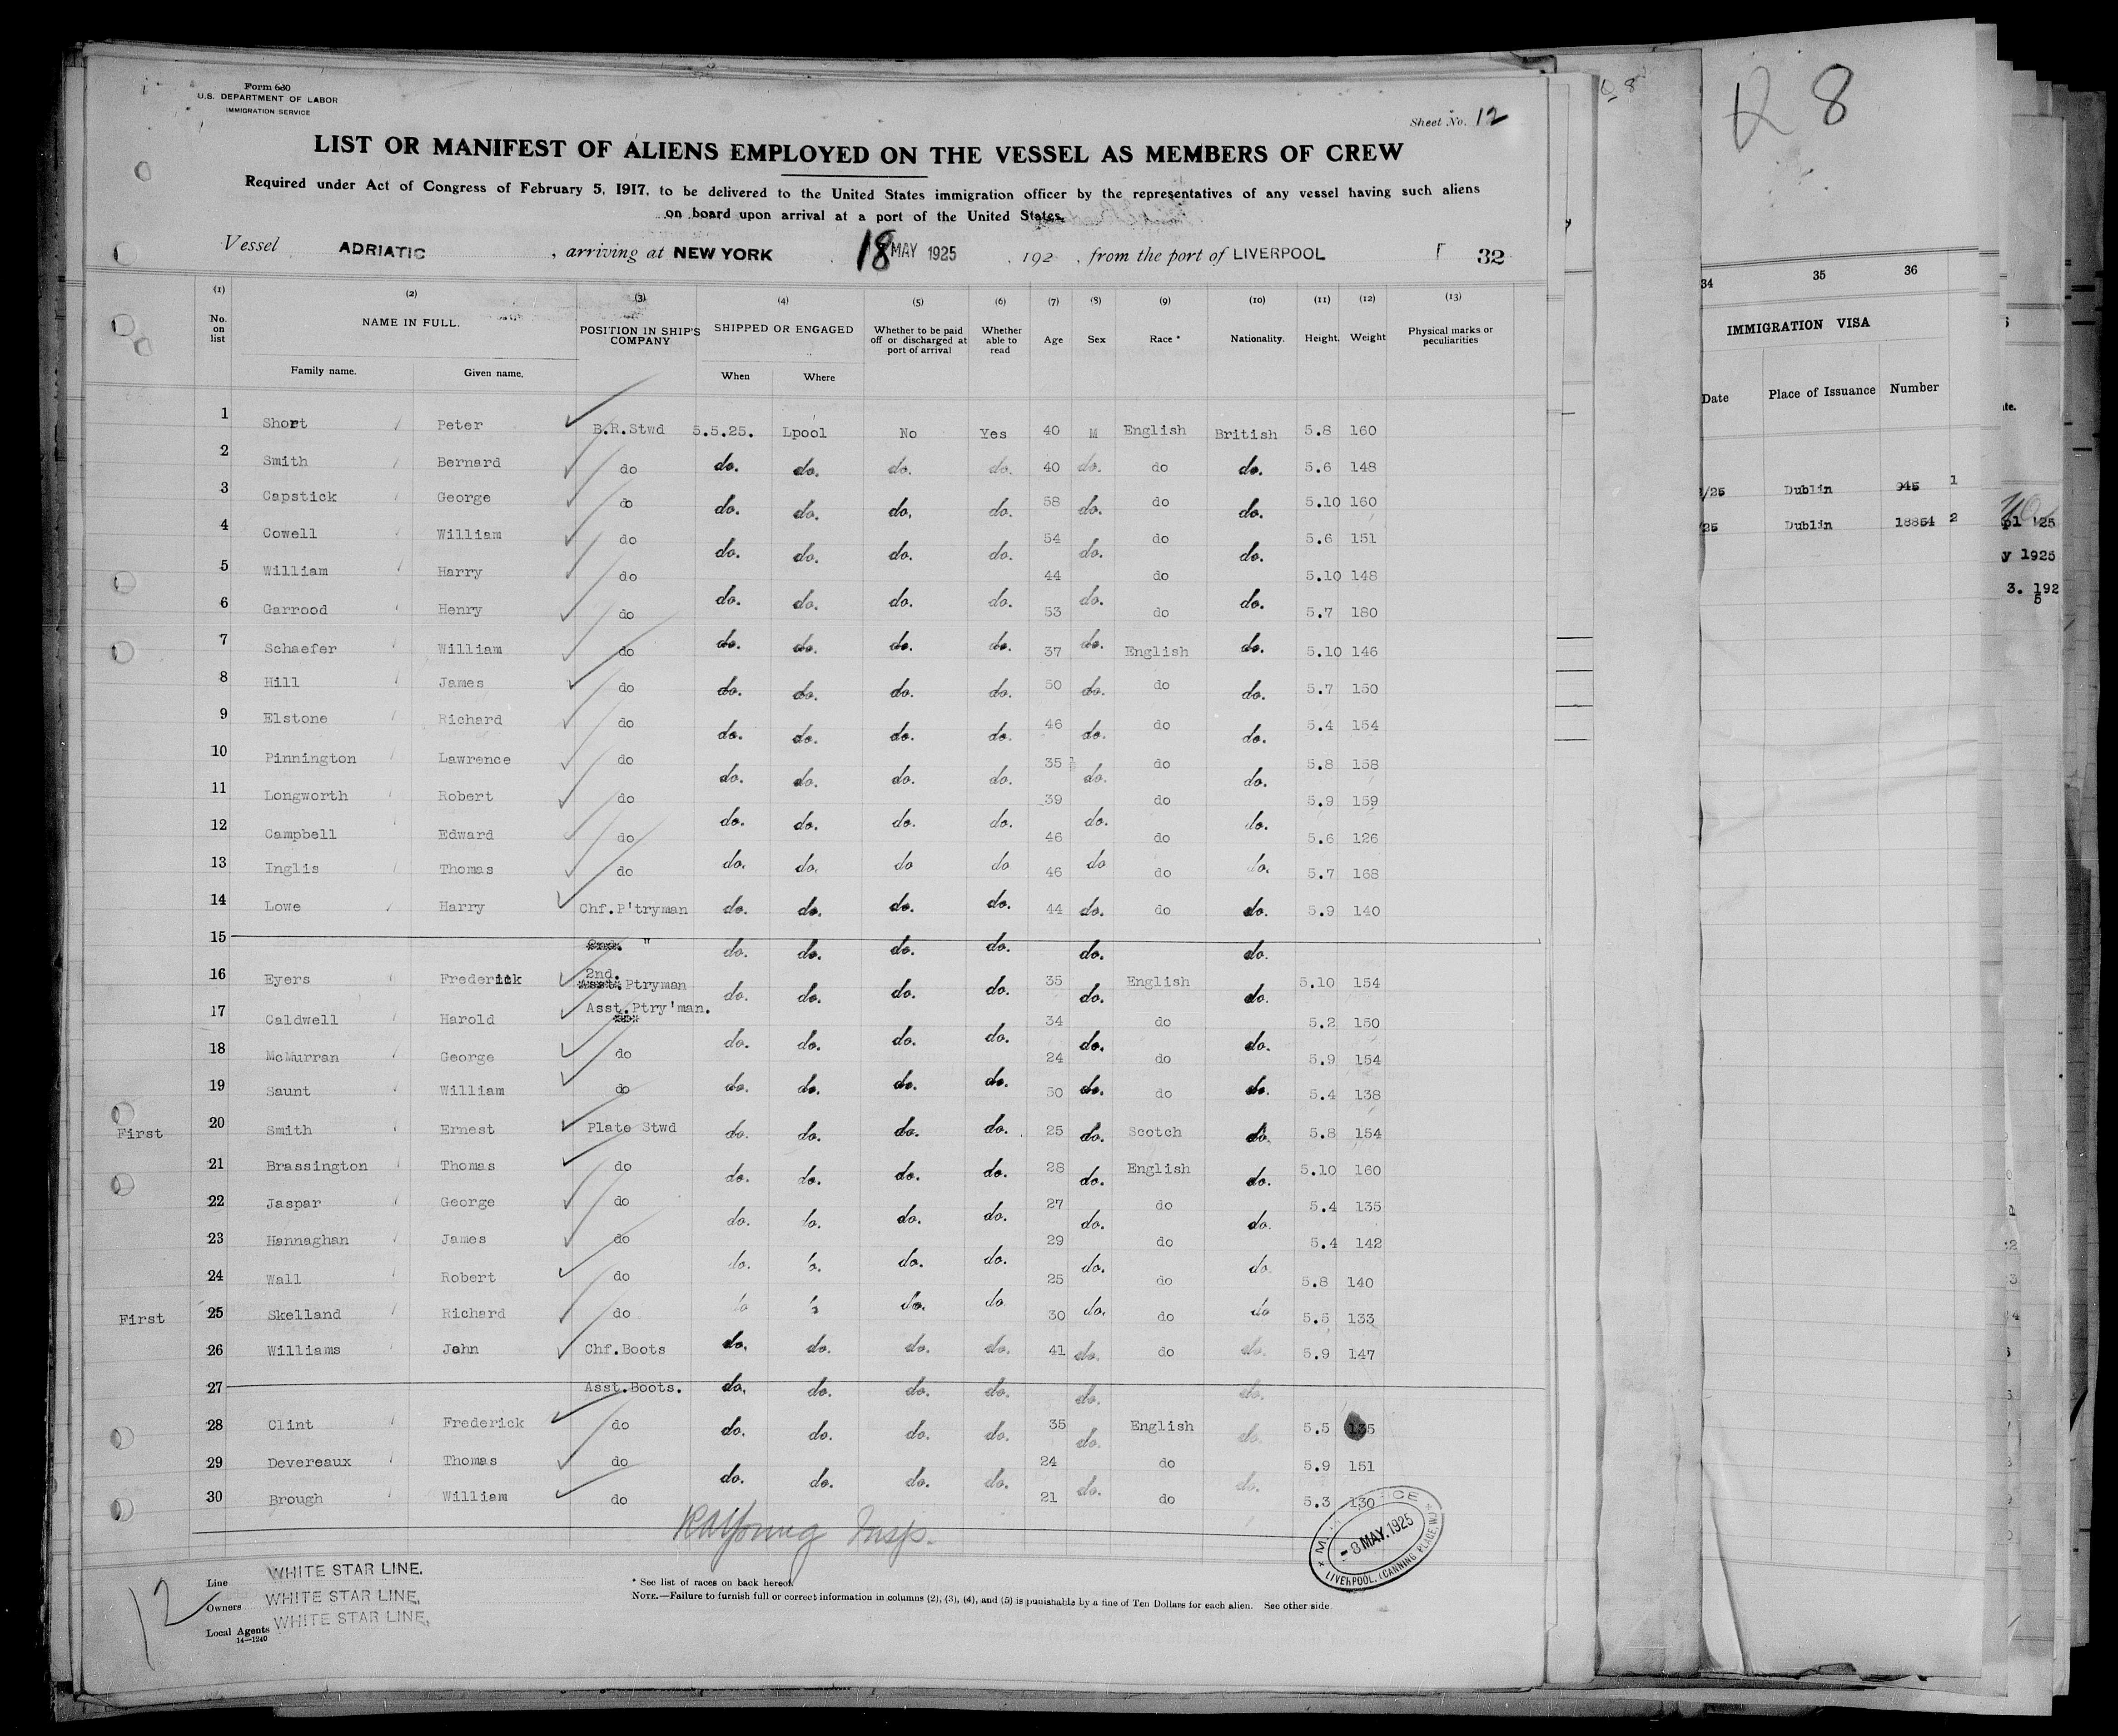 Form 680
U.S. DEPARTMENT OF LABOR
IMMIGRATION SERVICE
Sheet No. 12
LIST OR MANIFEST OF ALIENS EMPLOYED ON THE VESSEL AS MEMBERS OF CREW
Required under Act of Congress of February 5, 1917, to be delivered to the United States immigration officer by the representatives of any vessel having such aliens
on board upon arrival at a port of the United States.
Vessel ADRIATIC , arriving at NEW YORK 18 MAY 1925 , 192 , from the port of LIVERPOOL 32
(1) (2) (3) (4) (5) (6) (7) (8) (9) (10) (11) (12) (13)
No. on list NAME IN FULL. POSITION IN SHIP'S COMPANY SHIPPED OR ENGAGED Whether to be paid off or discharged at port of arrival Whether able to read Age Sex Race * Nationality. Height. Weight Physical marks or peculiarities
Family name. Given name. When Where
1 Short Peter B.R.Stwd 5.5.25. Lpool No Yes 40 M English British 5.8 160
2 Smith Bernard do do. do. do. do. 40 do. do do. 5.6 148
3 Capstick George do do. do. do. do. 58 do. do do. 5.10 160
4 Cowell William do do. do. do. do. 54 do. do do. 5.6 151
5 William Harry do do. do. do. do. 44 do. do do. 5.10 148
6 Garrood Henry do do. do. do. do. 53 do. do do. 5.7 180
7 Schaefer William do do. do. do. do. 37 do. English do. 5.10 146
8 Hill James do do. do. do. do. 50 do. do do. 5.7 150
9 Elstone Richard do do. do. do. do. 46 do. do do. 5.4 154
10 Pinnington Lawrence do do. do. do. do. 35 do. do do. 5.8 158
11 Longworth Robert do do. do. do. do. 39 do. do do. 5.9 159
12 Campbell Edward do do. do. do. do. 46 do. do do. 5.6 126
13 Inglis Thomas do do. do. do do 46 do do do. 5.7 168
14 Lowe Harry Chf.P'tryman do. do. do. do. 44 do. do do. 5.9 140
15 2nd. " do. do. do. do. do. do.
16 Eyers Frederick 2nd. Asst. Ptryman do. do. do. do. 35 do. English do. 5.10 154
17 Caldwell Harold Asst.Ptry'man. do. do. do. do. 34 do. do do. 5.2 150
18 McMurran George do do. do. do. do. 24 do. do do. 5.9 154
19 Saunt William do do. do. do. do. 50 do. do do. 5.4 138
First 20 Smith Ernest Plate Stwd do. do. do. do. 25 do. Scotch do. 5.8 154
21 Brassington Thomas do do. do. do. do. 28 do. English do. 5.10 160
22 Jaspar George do do. do. do. do. 27 do. do do. 5.4 135
23 Hannaghan James do do. do. do. do. 29 do. do do 5.4 142
24 Wall Robert do 25 do 5.8 140
First 25 Skelland Richard do do. do 30 do. do do 5.5 133
26 Williams John Chf.Boots do. do. do. do. 41 do. do do. 5.9 147
27 Asst.Boots. do. do. do. do. do. do.
28 Clint Frederick do do. do. do. do. 35 do. English do. 5.5 135
29 Devereaux Thomas do do. do. do. do. 24 do. do do. 5.9 151
30 Brough William do 21 do 5.3 130
RA Young Insp.
- 8 MAY.1925
LIVERPOOL, (CANNING PLACE, W.)
Line WHITE STAR LINE.
Owners WHITE STAR LINE,
Local Agents WHITE STAR LINE,
14—1240
12
* See list of races on back hereof.
NOTE.—Failure to furnish full or correct information in columns (2), (3), (4), and (5) is punishable by a fine of Ten Dollars for each alien. See other side.
8
8
34 35 36
IMMIGRATION VISA
Date Place of Issuance Number
/25 Dublin 945 1
/25 Dublin 18854 2
'25
y 1925
3. 192
5